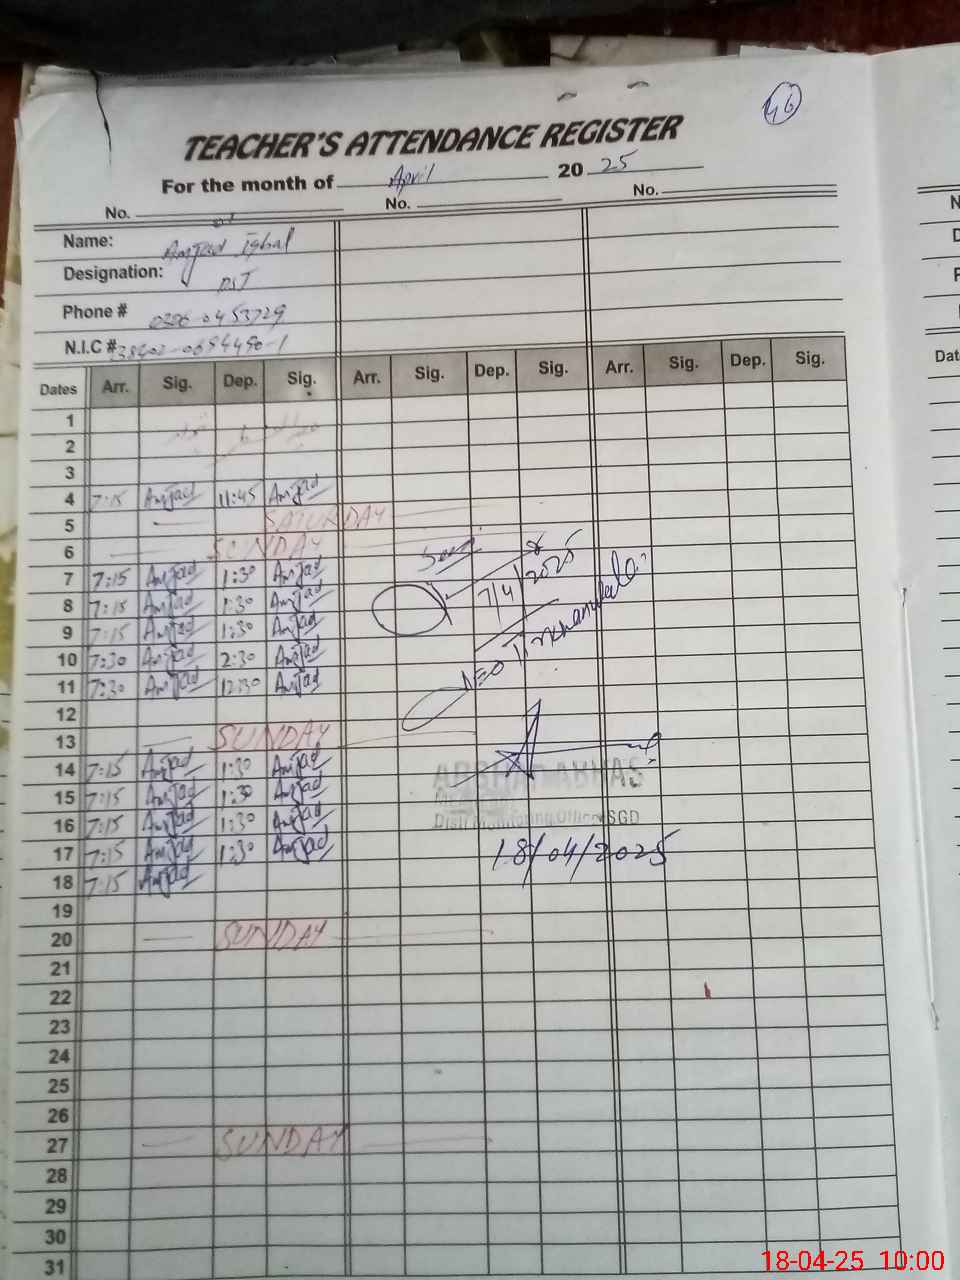 46
TEACHER'S ATTENDANCE REGISTER
For the month of April 2025
No. No. No.
Name: Amjad Iqbal
Designation: PST
Phone #
N.I.C #
Dates Arr. Sig. Dep. Sig. Arr. Sig. Dep. Sig. Arr. Sig. Dep. Sig.
1
2
3
4 7:15 Amjad 11:45 Amjad
5 SATURDAY
6 SUNDAY
7 7:15 Amjad 1:30 Amjad
8 7:15 Amjad 1:30 Amjad
9 7:15 Amjad 1:30 Amjad
10 7:30 Amjad 2:30 Amjad
11 7:30 Amjad 12:30 Amjad
12
13 SUNDAY
14 7:15 Amjad 1:30 Amjad
15 7:15 Amjad 1:30 Amjad
16 7:15 Amjad 1:30 Amjad
17 7:15 Amjad 1:30 Amjad
18 7:15 Amjad
19
20 SUNDAY
21
22
23
24
25
26
27 SUNDAY
28
29
30
31
7/4/2025
Distt Monitoring Officer SGD
18/04/2025
18-04-25 10:00